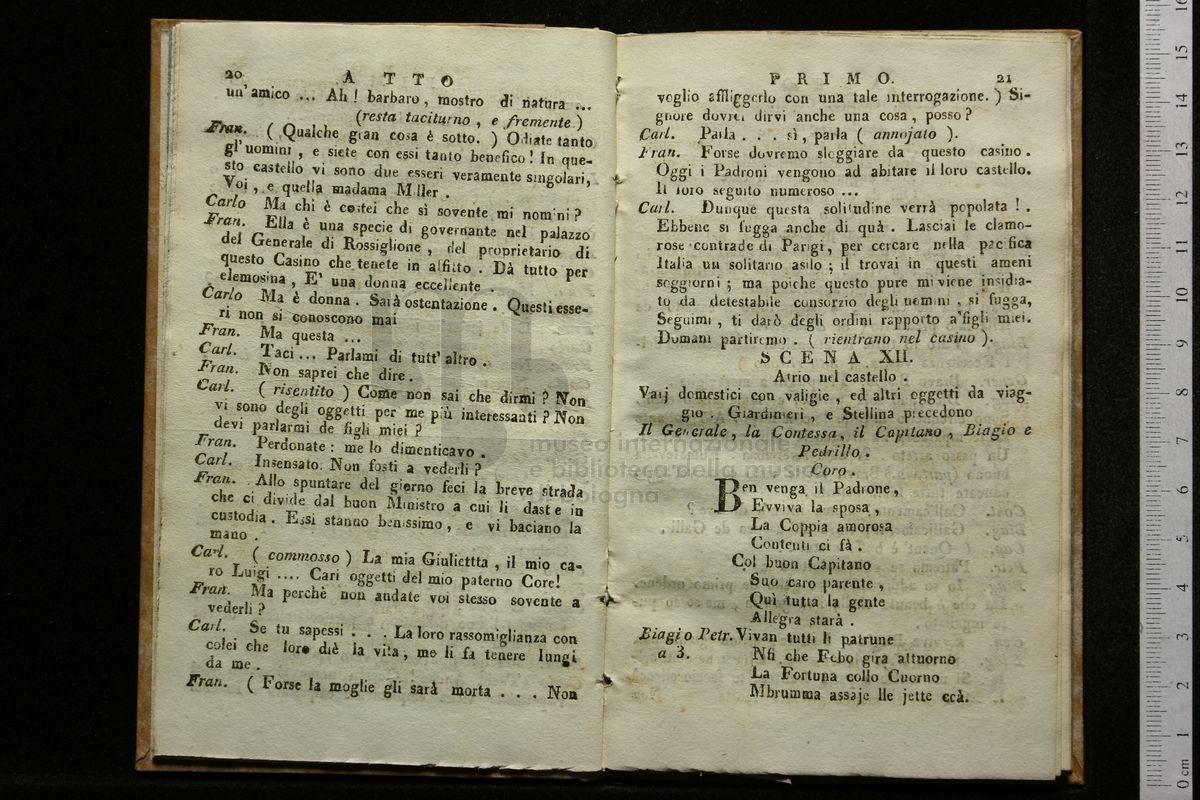 20 ATTO
un' amico ... Ah ! barbaro, mostro di natura ...
(resta taciturno, e fremente.)
Fran. ( Qualche gran cosa è sotto. ) Odiate tanto
gl'uomini, e siete con essi tanto benefico ! In que-
sto castello vi sono due esseri veramente singolari,
Voi, e quella madama Miller.
Carlo Ma chi è costei che sì sovente mi nomini ?
Fran. Ella è una specie di governante nel palazzo
del Generale di Rossiglione, del proprietario di
questo Casino che tenete in affitto. Dà tutto per
elemosina, E' una donna eccellente.
Carlo Ma è donna. Sarà ostentazione. Questi esse-
ri non si conoscono mai
Fran. Ma questa ...
Carl. Taci ... Parlami di tutt' altro.
Fran. Non saprei che dire.
Carl. ( risentito ) Come non sai che dirmi ? Non
vi sono degli oggetti per me più interessanti ? Non
devi parlarmi de figli miei ?
Fran. Perdonate : me lo dimenticavo.
Carl. Insensato. Non fosti a vederli ?
Fran. Allo spuntare del giorno feci la breve strada
che ci divide dal buon Ministro a cui li daste in
custodia. Essi stanno benissimo, e vi baciano la
mano.
Carl. ( commosso ) La mia Giuliettta, il mio ca-
ro Luigi .... Cari oggetti del mio paterno Core!
Fran. Ma perchè non andate voi stesso sovente a
vederli ?
Carl. Se tu sapessi . . . La loro rassomiglianza con
colei che loro diè la vita, me li fa tenere lungi
da me.
Fran. ( Forse la moglie gli sarà morta . . . Non
PRIMO. 21
voglio affliggerlo con una tale interrogazione. ) Si-
gnore dovrei dirvi anche una cosa, posso ?
Carl. Parla . . . sì, parla ( annojato ).
Fran. Forse dovremo sloggiare da questo casino.
Oggi i Padroni vengono ad abitare il loro castello.
Il loro seguito numeroso ...
Carl. Dunque questa solitudine verrà popolata !.
Ebbene si fugga anche di quà. Lasciai le clamo-
rose contrade di Parigi, per cercare nella pacifica
Italia un solitario asilo ; il trovai in questi ameni
soggiorni ; ma poiche questo pure mi viene insidia-
to da detestabile consorzio degli uomini, si fugga,
Seguimi, ti darò degli ordini rapporto a'figli miei.
Domani partiremo. ( rientrano nel casino ).
SCENA XII.
Atrio nel castello.
Varj domestici con valigie, ed altri oggetti da viag-
gio. Giardinieri, e Stellina precedono
Il Generale, la Contessa, il Capitano, Biagio e
Pedrillo.
Coro.
Ben venga il Padrone,
Evviva la sposa,
La Coppia amorosa
Contenti ci fà.
Col buon Capitano
Suo caro parente,
Quì tutta la gente
Allegra starà.
Biagio Petr. Vivan tutti li patrune
a 3. Nfi che Febo gira attuorno
La Fortuna collo Cuorno
Mbrumma assaje lle jette ccà.
museo internazionale
e biblioteca della musica
di bologna
0 cm 1 2 3 4 5 6 7 8 9 10 11 12 13 14 15 16